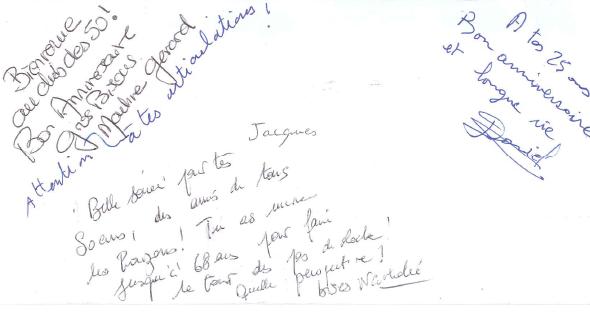 Bienvenue
au club des 50!
Bon Anniversaire
Gros Bisous
Martine Gérard
Attention à tes articulations!
A tes 25 ans
Bon anniversaire
et longue vie
Daniel
Jacques
Belle soirée pour tes
50 ans, des amis de tous
les! Tu as encore
jusqu'à 68 ans pour faire
le tour des pas de!
Quelle perspective!
bises